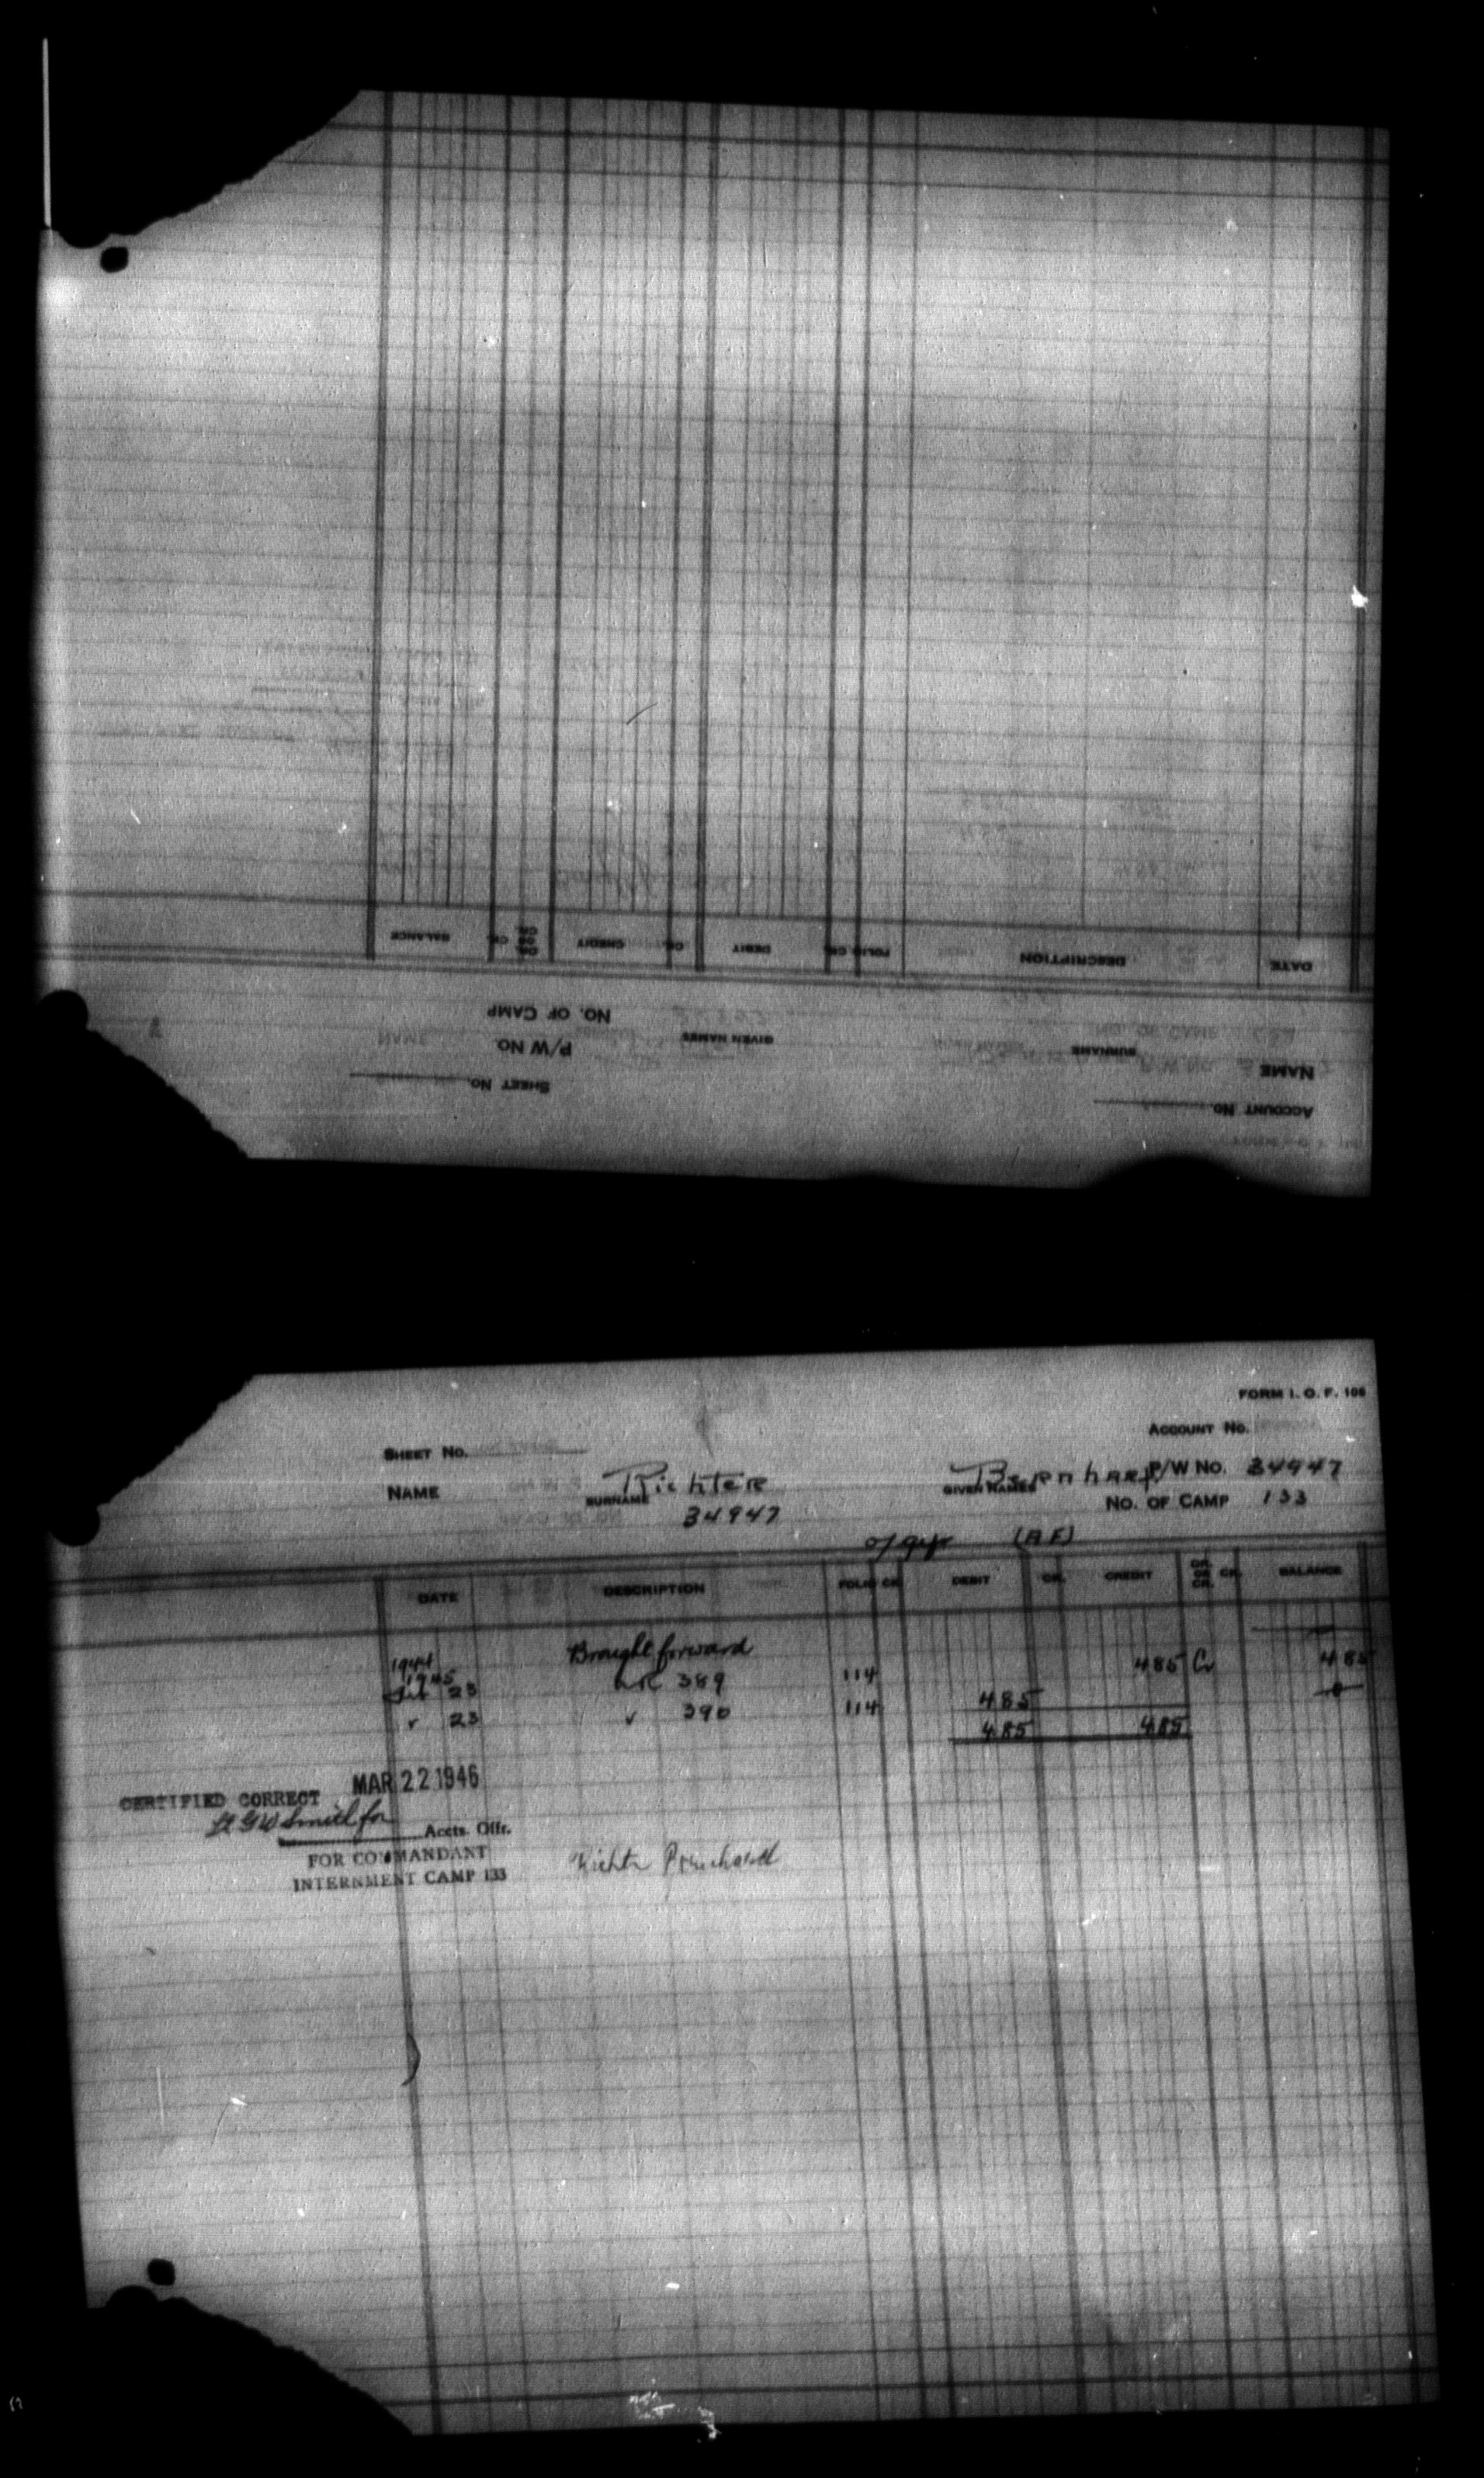 BALANCE
CR.
DR. OR CR.
CREDIT
CR.
DEBIT
FOLIO CR.
DESCRIPTION
DATE
NO. OF CAMP
P/W NO.
GIVEN NAMES
SURNAME
NAME
SHEET NO.
ACCOUNT NO.
FORM I. O. F. 106
ACCOUNT NO.
SHEET NO.
NAME Richter Bernhard P/W NO. 34947
SURNAME GIVEN NAMES
34947 NO. OF CAMP 133
(AF)
DATE DESCRIPTION FOLIO CR. DEBIT CR. CREDIT DR. OR CR. CR. BALANCE
1944 Brought forward
1945
23 389 114 4 85 Cr 4 85
✓ 23 ✓ 390 114 4 85 0
4 85 4 85
MAR 22 1946
CERTIFIED CORRECT
Lt GW Smith for Accts. Offr.
FOR COMMANDANT
INTERNMENT CAMP 133
Richter Bernhard